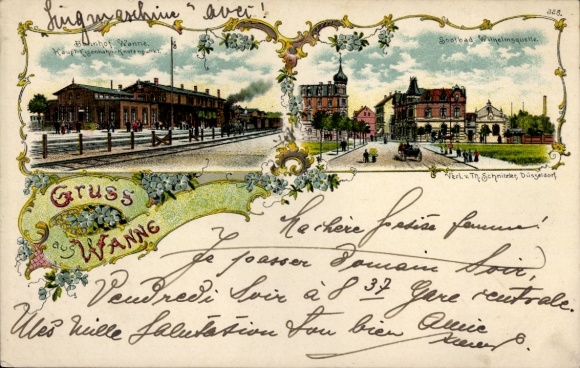 Singmaschine "avei!
328.
Bahnhof Wanne.
Haupt-Eisenbahn-Knotenpunkt.
Soolbad Wilhelmsquelle.
Verl. v. Th. Schnitzler, Düsseldorf.
Gruss
aus
WANNE
Ma chère petite femme!
Je passer domain Soir,
Vendredi Soir à 8 37 Gare centrale.
Mes mille Salutation ton bien Amie